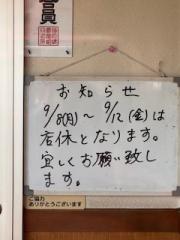 会員
お知らせ
9/8(月)～9/12(金)は
店休となります。
宜しくお願い致し
ます。
ご協力
ありがとうございます